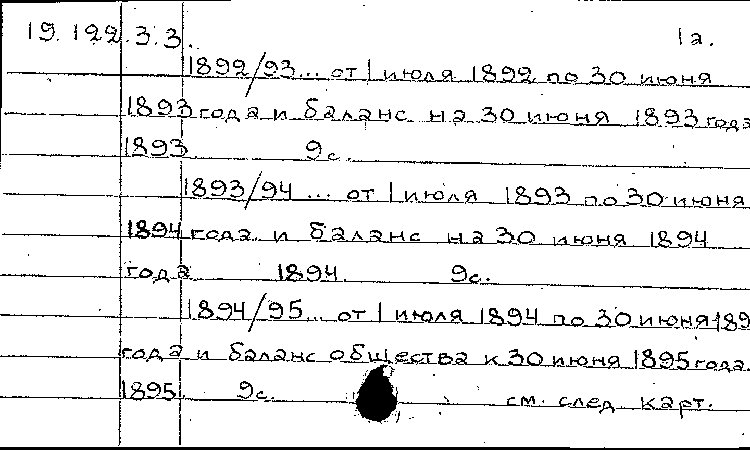 19.122.3.3. 1а.
1892/93... от 1 июля 1892 по 30 июня
1893 года и баланс на 30 июня 1893 года
1893 9с.
1893/94 ... от 1 июля 1893 по 30 июня
1894 года и баланс на 30 июня 1894
года 1894. 9с.
1894/95... от 1 июля 1894 по 30 июня 189
года и баланс общества к 30 июня 1895 года.
1895. 9с. см. след. карт.